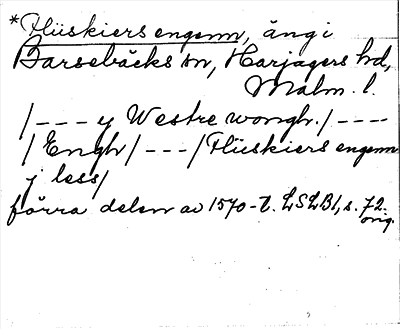 *Hüskiers engenn, äng i
Barsebäcks sn, Harjagers hd,
Malm. l.
/--- y Westre wongh./----
/Engh/---/Hüskiers engenn
j less/
förra delen av 1570-t. LSLB1, s. 72.
orig.